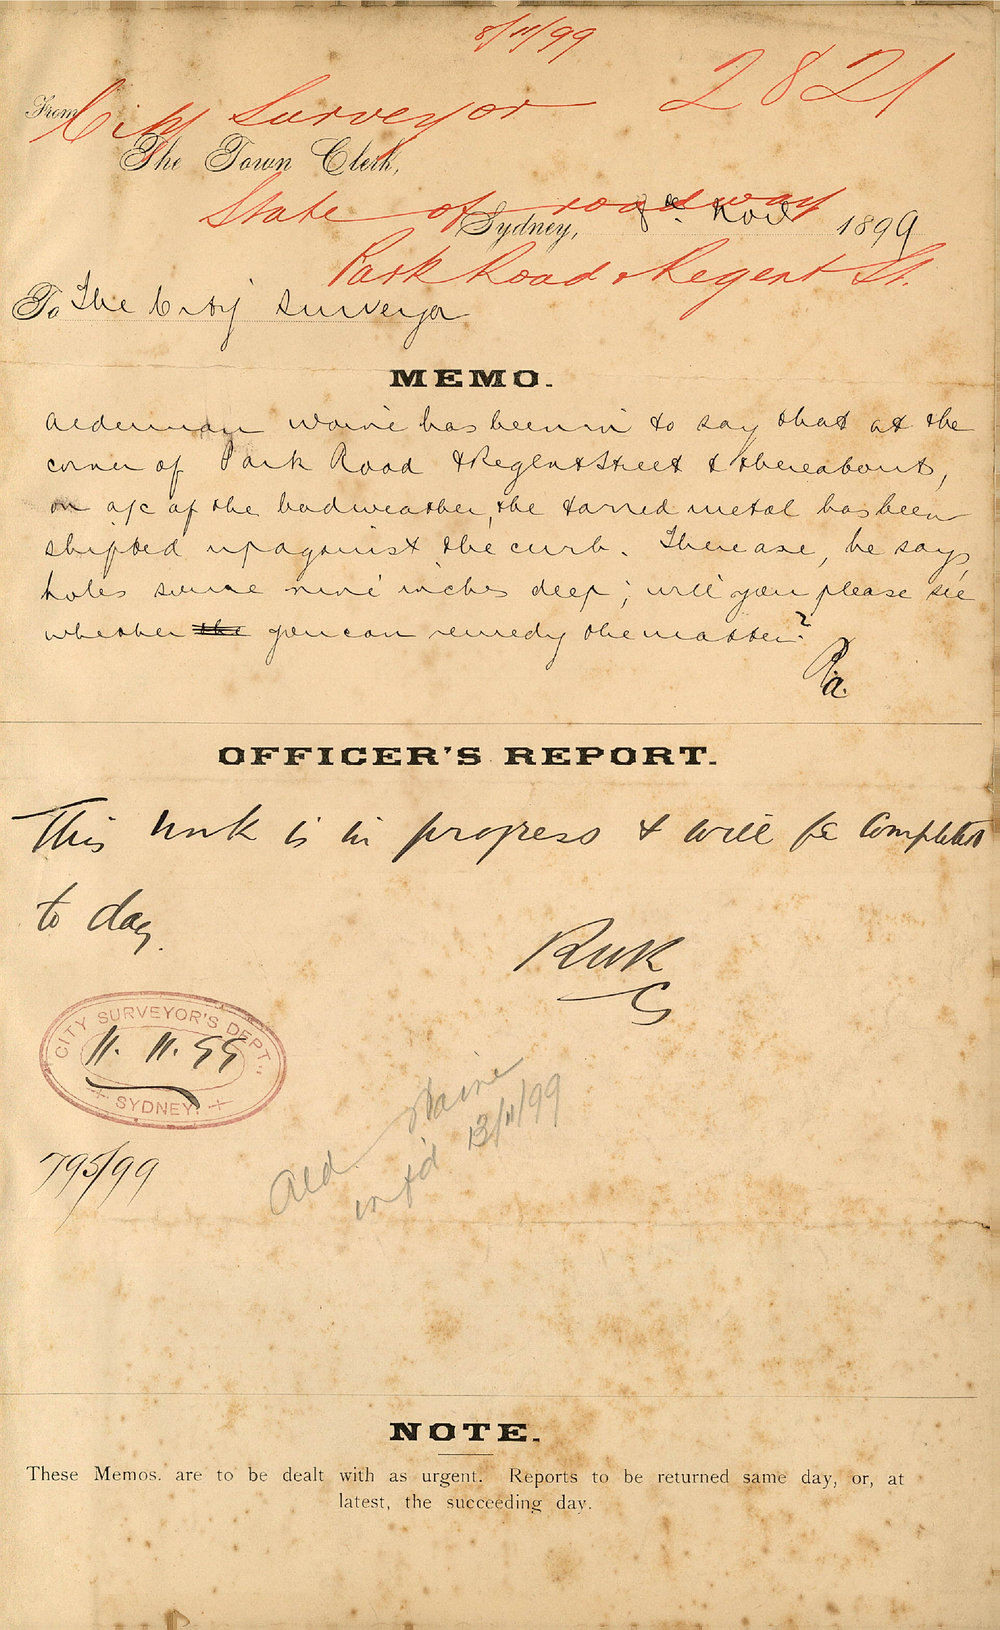 8/11/99
From City Surveyor 2821
The Town Clerk,
State of roadway
Sydney, 8th Nov 1899
Park Road & Regent St.
To The City Surveyor
MEMO.
Alderman Waine has been in to say that at the
corner of Park Road & Regent Street & thereabouts,
on a/c of the bad weather, the tarred metal has been
shifted up against the curb. There are, he says,
holes some nine inches deep; will you please see
whether the you can remedy the matter?
OFFICER'S REPORT.
This work is in progress & will be completed
to day.
RWR
CITY SURVEYOR'S DEPT.
11. 11. 99
SYDNEY.
795/99
Ald. Waine
inf'd 13/11/99
NOTE.
These Memos. are to be dealt with as urgent. Reports to be returned same day, or, at
latest, the succeeding day.